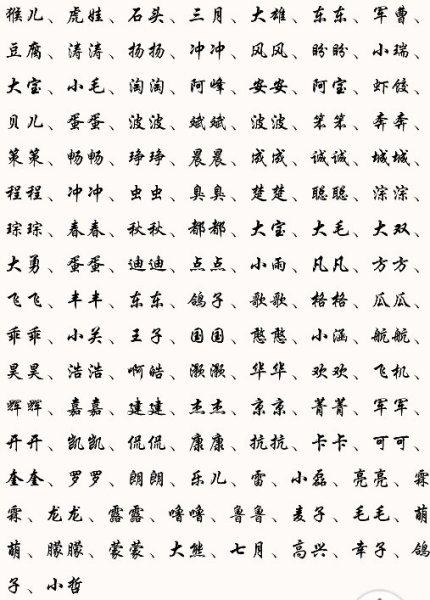 猴儿、虎娃、石头、三月、大雄、东东、军曹、
豆腐、涛涛、扬扬、冲冲、风风、盼盼、小瑞、
大宝、小毛、淘淘、阿峰、安安、阿宝、虾饺、
贝儿、蛋蛋、波波、斌斌、波波、笨笨、奔奔、
策策、畅畅、琤琤、晨晨、成成、诚诚、城城、
程程、冲冲、虫虫、臭臭、楚楚、聪聪、淙淙、
琮琮、春春、秋秋、都都、大宝、大毛、大双、
大勇、蛋蛋、迪迪、点点、小雨、凡凡、方方、
飞飞、丰丰、东东、鸽子、歌歌、格格、瓜瓜、
乖乖、小关、王子、国国、憨憨、小涵、航航、
昊昊、浩浩、啊皓、灏灏、华华、欢欢、飞机、
辉辉、嘉嘉、建建、杰杰、京京、菁菁、军军、
开开、凯凯、侃侃、康康、抗抗、卡卡、可可、
奎奎、罗罗、朗朗、乐儿、雷、小磊、亮亮、霖
霖、龙龙、露露、噜噜、鲁鲁、麦子、毛毛、萌
萌、朦朦、蒙蒙、大熊、七月、高兴、幸子、鸽
子、小哲